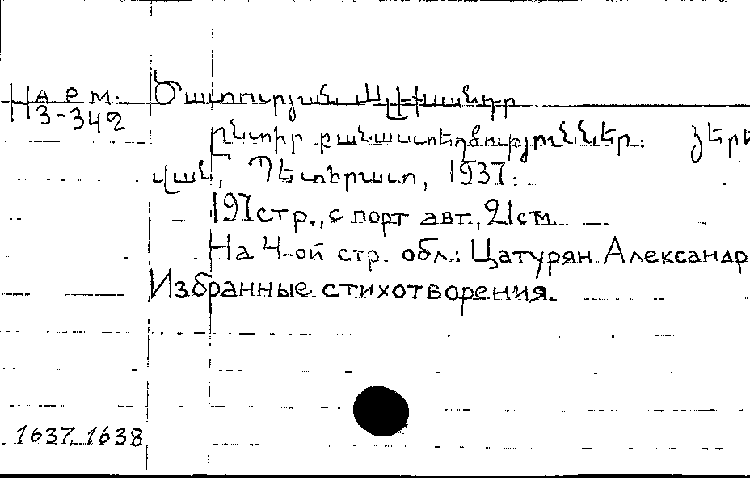 На арм.
3-342
Ծատուրյան Ալեքսանդր
Ընտիր բանաստեղծություններ: Երե
վան, Պետհրատ, 1937:
197 стр., с порт авт., 21 см.
На 4-ой стр. обл.: Цатурян Александр
Избранные стихотворения.
1637, 1638